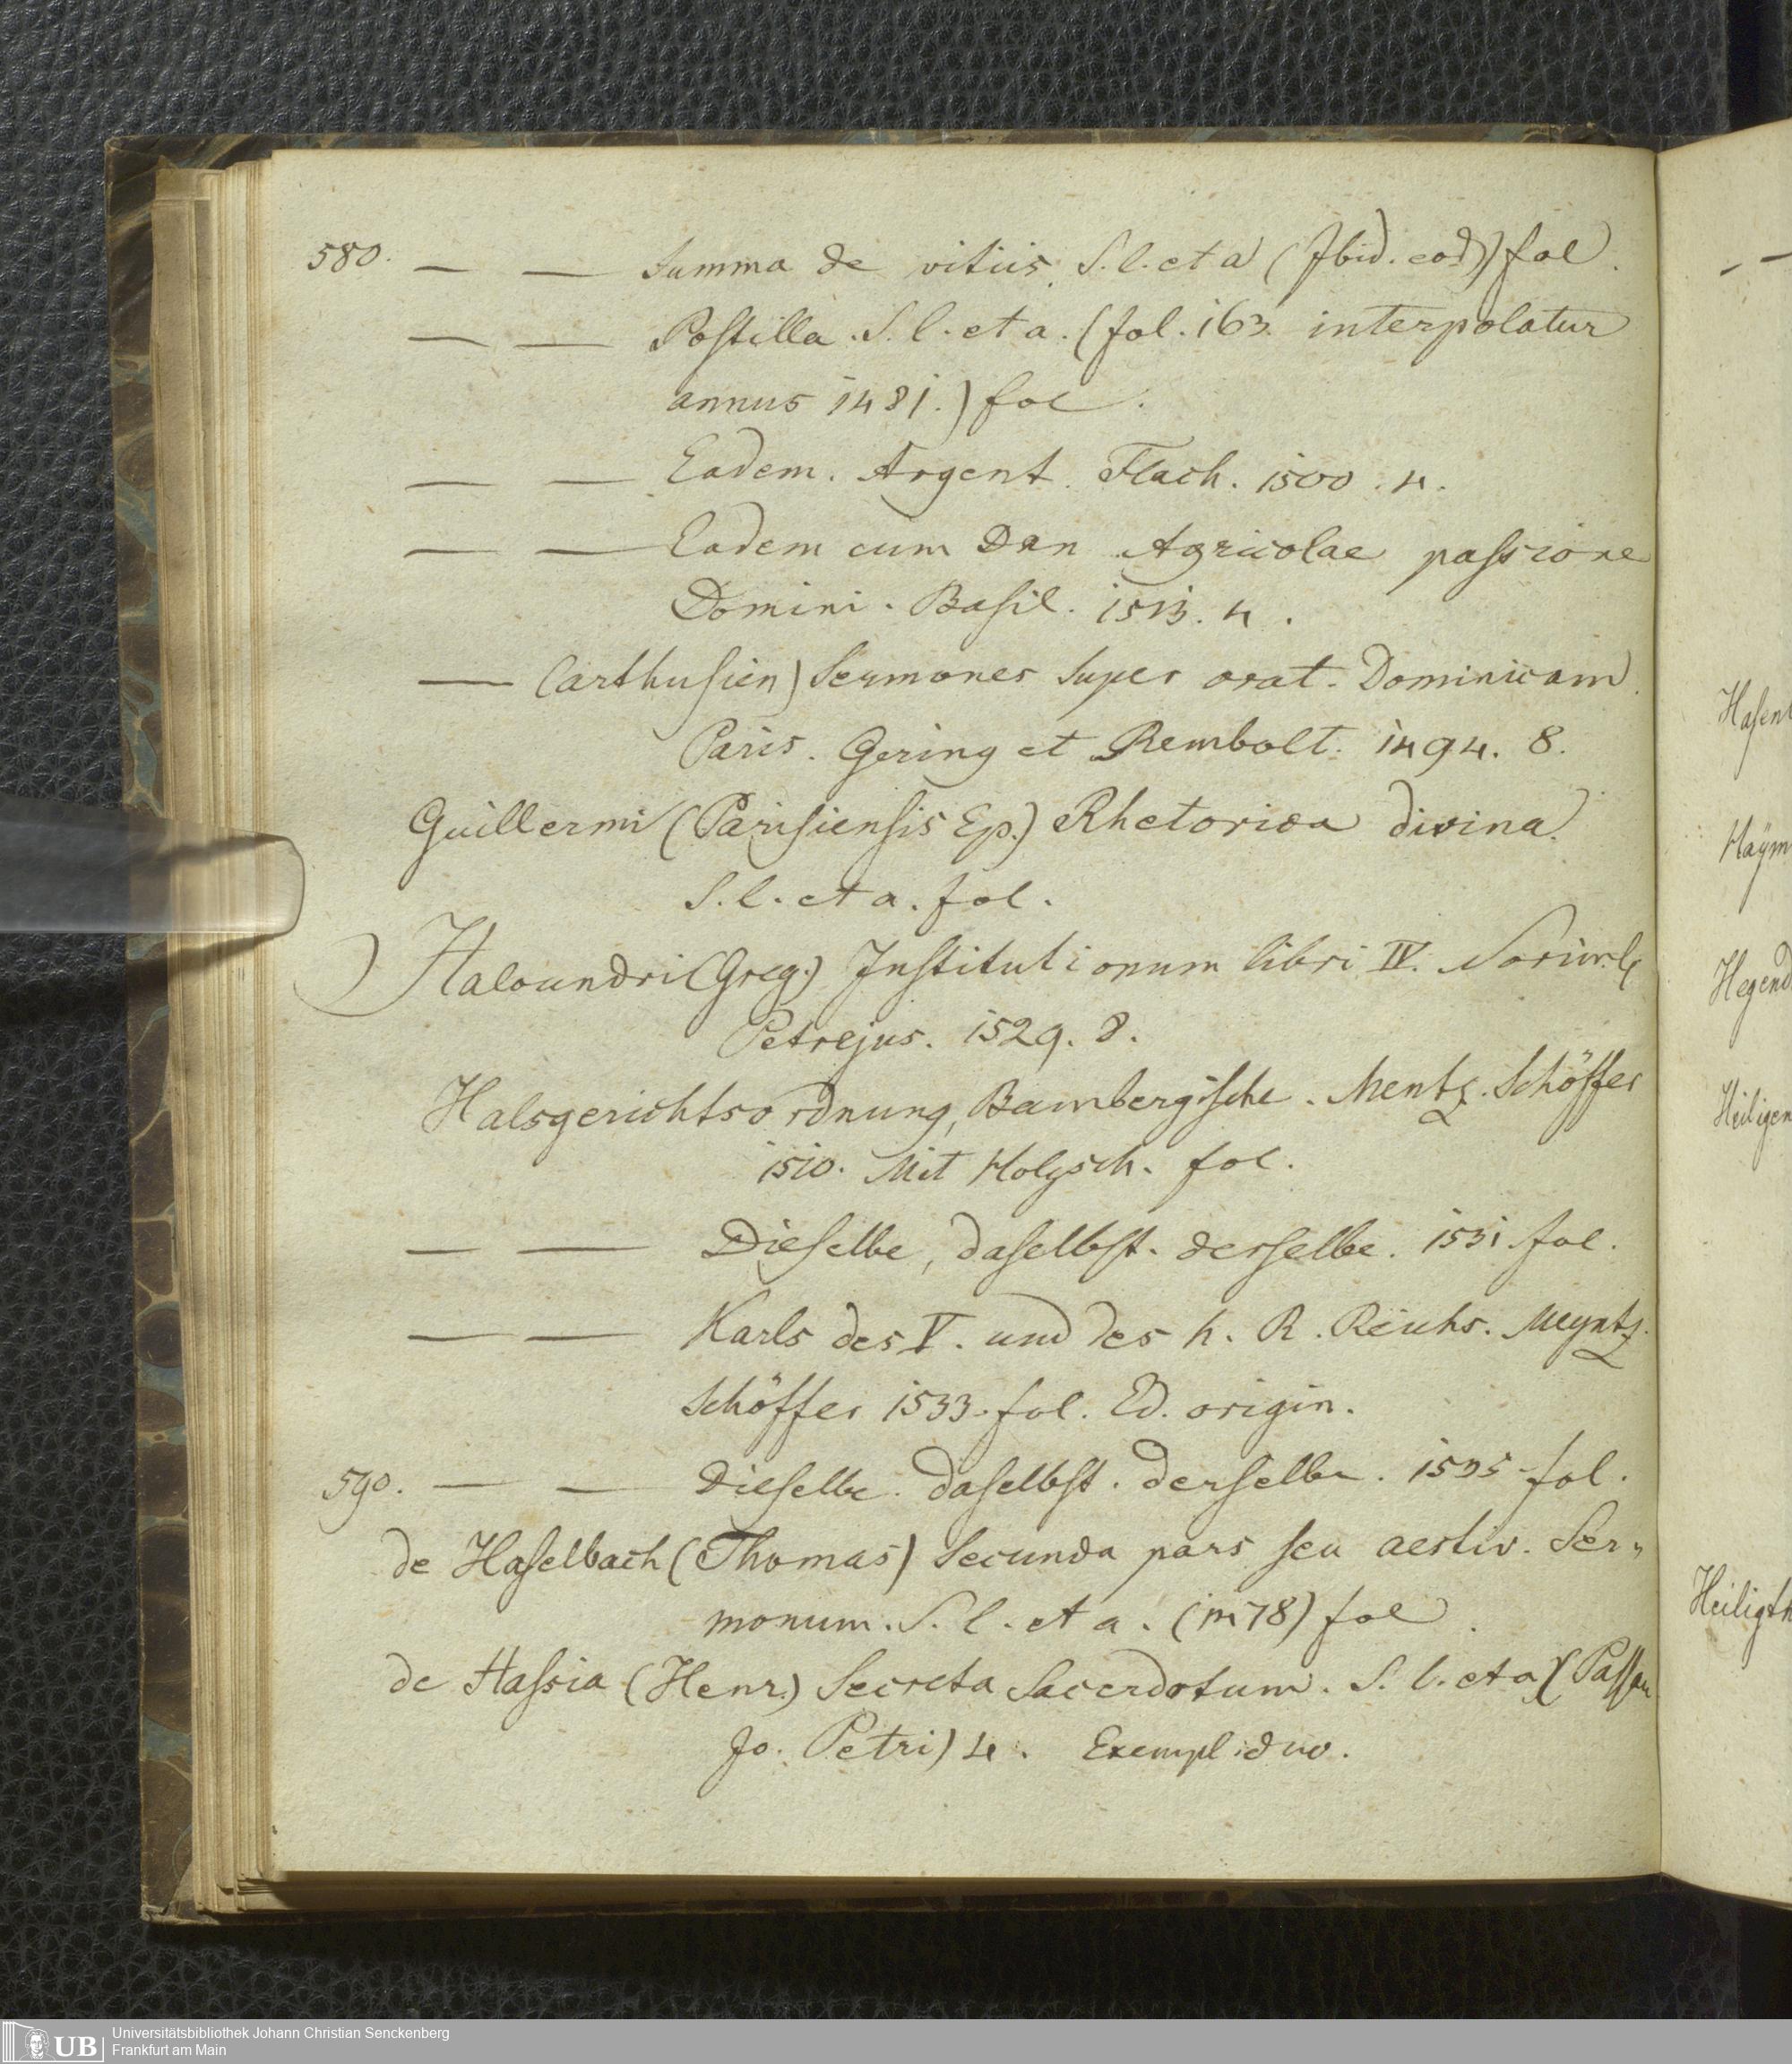 580. — — Summa de vitiis. S. l. et a (Ibid. eod) fol.
— — Postilla. S. l. et a. (fol. 163. interpolatur
annus 1481.) fol.
— — Eadem. Argent. Flach. 1500. 4.
— — Eadem cum Dan Agricolae passione
Domini. Basil. 1513. 4.
— Carthusien) Sermones super orat. Dominicam.
Paris. Gering et Rembolt. 1494. 8.
Guillermi (Parisiensis Ep.) Rhetorica divina.
S. l. et a. fol.
Haloandri (Greg.) Institutionum libri IV. Norimb
Petrejus. 1529. 8.
Halsgerichtsordnung, Bambergische. Mentz. Schöffer
1510. Mit Holzsch. fol.
— — Dieselbe, daselbst. derselbe. 1531. fol.
— — Karls des V. und des h. R. Reichs. Meyntz.
Schöffer 1533. fol. Ed. origin.
590. — — Dieselbe. daselbst. derselbe. 1535 fol.
de Haselbach (Thomas) Secunda pars seu aestiv. Ser„
monum. S. l. et a. (1478) fol.
de Hassia (Henr.) Secreta Sacerdotum. S. l. et a) (Passau
Jo. Petri) 4. Exempl. duo.
Hasent
Haym
Hegend
Heiligen
Heiligth
UB
Universitätsbibliothek Johann Christian Senckenberg
Frankfurt am Main